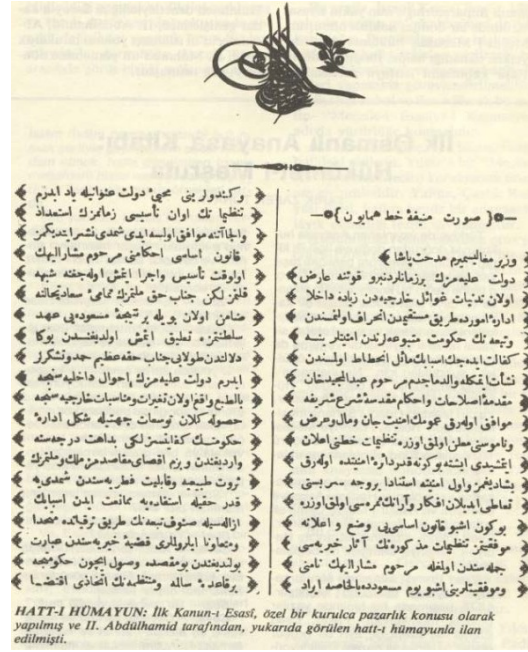 ﴿ صورت منیفهٔ خط همایون ﴾
وزیر معالیسمیرم مدحت پاشا
دولت علیه‌مزك بر زماندنبرو قوتنه عارض
اولان تدنیات غوائل خارجیه‌دن زیاده داخلا
ادارهٔ امورده طریق مستقیمدن انحراف اولنمسندن
وتبعه‌نك حکومت متبوعه‌لرندن امنیتلرینه
کفالت ایده‌جك اسبابك مائل انحطاط اولمسندن
نشأت ایتمکله والد ماجدم مرحوم عبدالمجید خان
مقدمهٔ اصلاحات واحکام مقدسهٔ شرع شریفه
موافق اوله‌رق عمومك امنیت جان ومال وعرض
وناموسنی معلن اولمق اوزره تنظیمات خطنی اعلان
ایتمشیدی ایشته بوکونه قدر دائرهٔ امنیتده اوله‌رق
یشادیغمز واول امنیته استنادا بروجه سربستی
تعاطی ایدیلان افکار وآرانك ثمره‌سی اولمق اوزره
بوکون اشبو قانون اساسی‌یی وضع و اعلانه
موفقیتمز تنظیمات مذکوره‌نك آثار خیریه‌سی
جمله‌سندن اولمغله مرحوم مشارالیهك نامنی
وموفقیتلرینی اشبو یوم مسعودده بالخاصه ایراد
وکندولرینی محیی دولت عنوانیله یاد ایدرم
تنظیماتك اوان تأسیسی زمانمزك استعداد
والجاآتنه موافق اولسه ایدی شمدی نشر ایتدیکمز
قانون اساسی احکامنی مرحوم مشارالیهك
اولوقت تأسیس واجرا ایتمش اوله‌جغنه شبهه
قلمز لکن جناب حق ملتمزك تمامیٔ سعادتحالنه
ضامن اولان بویله بر نتیجهٔ مسعوده‌یی عهد
سلطنتمزه تعلیق ایتمش اولدیغندن بوکا
دلالتدن طولایی جناب حقه عظیم حمد وتشکرلر
ایدرم دولت علیه‌مزك احوال داخلیه‌سنجه
بالطبع واقع اولان تغیرات ومناسبات خارجیه‌سنجه
حصوله کلان توسعات جهتیله شکل ادارهٔ
حکومتك کفایتسزلکی بداهت درجه‌سنه
واردیغندن وبزم اقصای مقاصدمز ملك وملتمزك
ثروت طبیعیه وقابلیت فطریه‌سندن شمدی‌یه
قدر حقیله استفاده‌یه ممانعت ایدن اسبابك
ازاله‌سیله صنوف تبعه‌نك طریق ترقیاتده متحدا
ومتعاونا ایلرولمری قضیهٔ خیریه‌سندن عبارت
بولندیغندن بومقصده وصول ایچون حکومتجه
بر قاعدهٔ سالمه ومنتظمه‌نك اتخاذی اقتضا
HATT-I HÜMAYUN: İlk Kanun-ı Esasî, özel bir kurulca pazarlık konusu olarak
yapılmış ve II. Abdülhamid tarafından, yukarıda görülen hatt-ı hümayunla ilan
edilmişti.